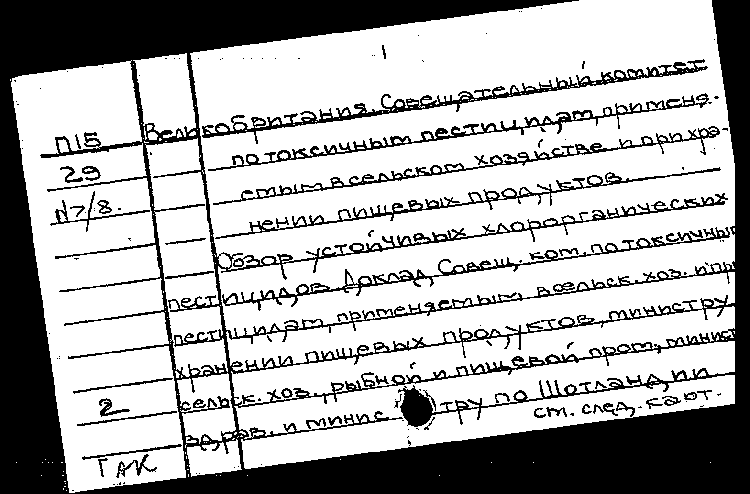 1
П15
29
N7/8.
Великобритания. Совещательный комитет
по токсичным пестицидам, применя-
емым в сельском хозяйстве и при хра-
нении пищевых продуктов.
Обзор устойчивых хлорорганических
пестицидов. Доклад Совещ. ком. по токсичным
пестицидам, применяемым в сельск. хоз. и при
хранении пищевых продуктов, министру
сельск. хоз., рыбной и пищевой пром., минист
здрав. и минис тру по Шотландии
см. след. карт.
2
ТАК